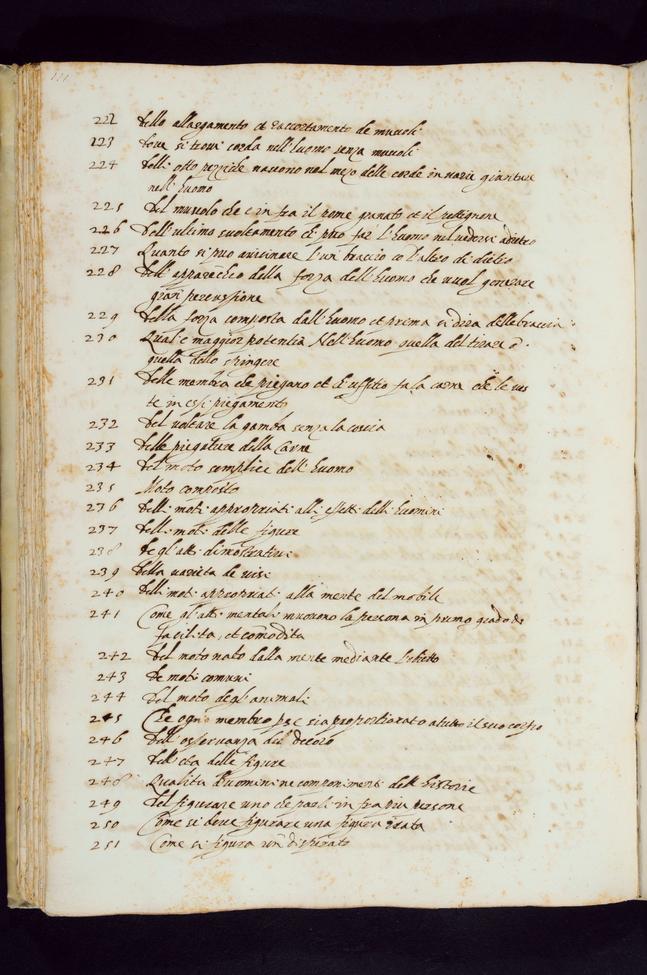 222 Dello allargamento et raccortamento de muscoli
223 Dove si trova corda nell'huomo senza muscoli
224 Delli otto pezzi de nascono nel mezo delle corde in varie giunture
nell'huomo
225 Del muscolo che e infra il pome granato et il
226 Dell'ultimo svoltamento che puo far l'huomo nel vedersi adietro
227 Quanto si puo avicinare l'un braccio co l'altro di dietro
228 Dell'apparecchio della forza dell'huomo che vuol generare
gran percussione
229 Della forza composta dall'huomo et prima si dira delle braccia
230 Qual'e maggior potentia Nell'huomo quella del tirare o
quella dello spingere
231 Delle membra che piegano et ch'uffitio fa la carne che le ves
te in essi piegamento
232 Del voltare la gamba senza la coscia
233 Delle piegature della Carne
234 Del moto semplice dell'huomo
235 Moto composto
236 Delli moti appropriati alli effetti delli huomini
237 Delli moti delle figure
238 De gl'atti dimostrativi
239 Della varieta de visi
240 Delli moti appropriati alla mente del mobile
241 Come gl'atti mentali muovono la persona in primo grado di
facilita, et comodita
242 Del moto nato dalla mente mediante l'obietto
243 De moti comuni
244 Del moto degl'animali
245 Che ogni membro per se sia proportionato a tutto il suo corpo
246 Dell'osservanza del decoro
247 Dell'eta delle figure
248 Qualita d'uomini ne componimenti dell'historie
249 Del figurare uno che parli infra piu persone
250 Come si deve figurare una figura irata
251 Come si figura un disperato